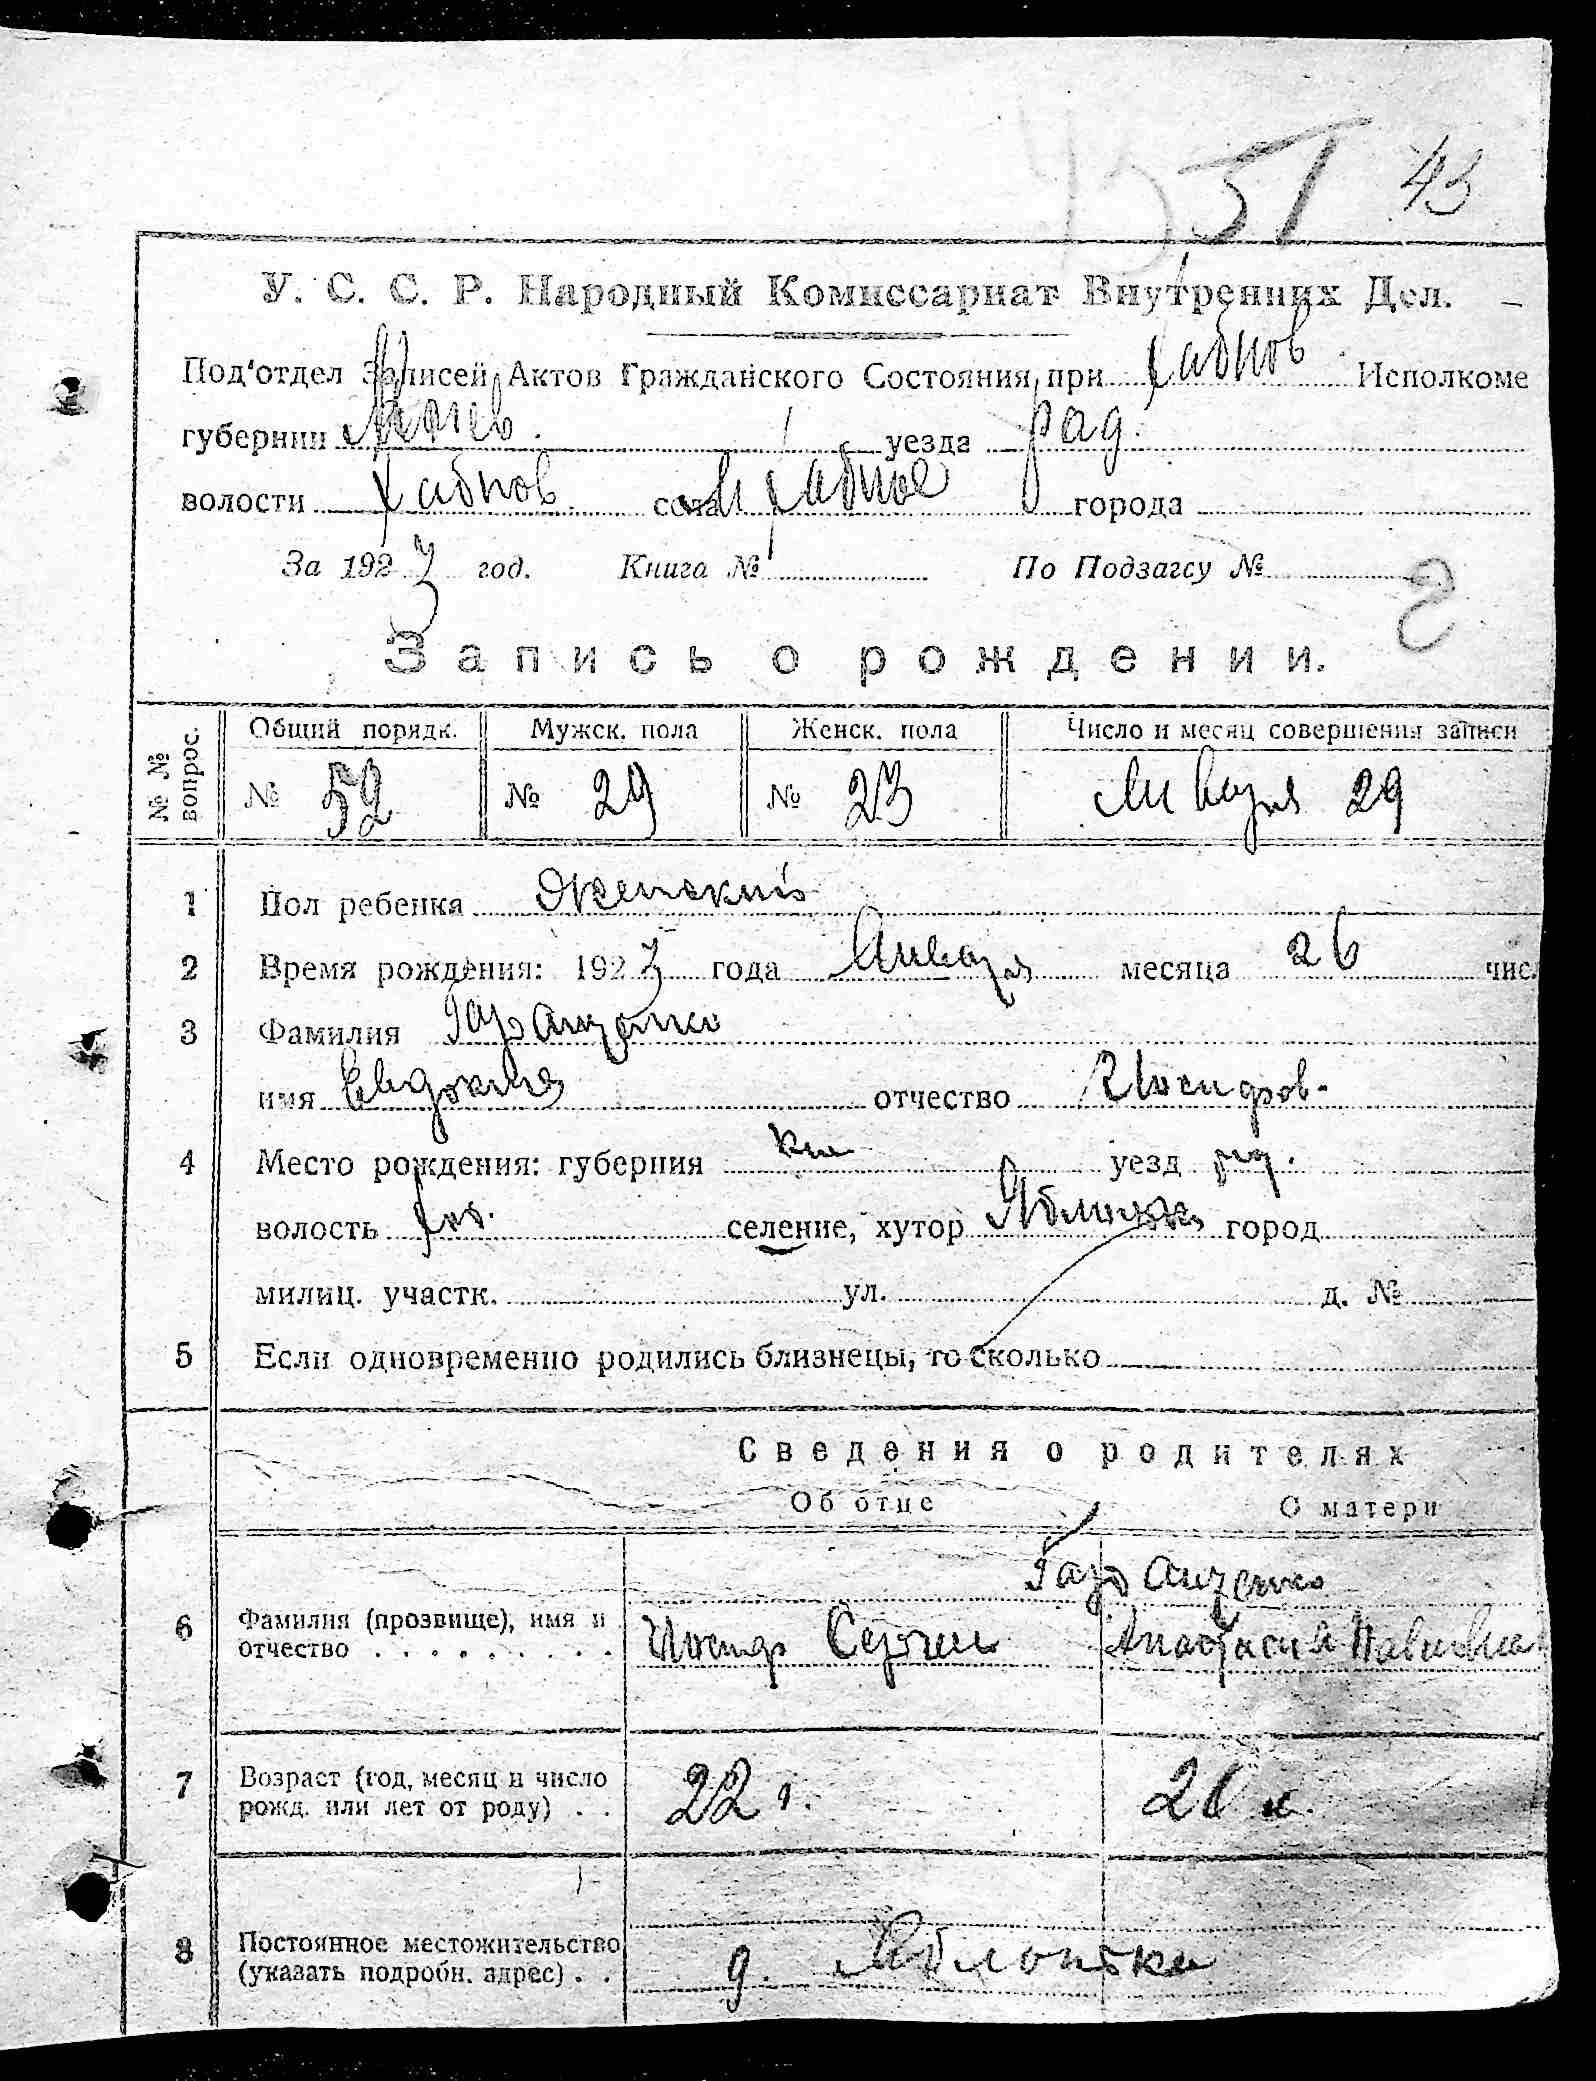 51 43
У. С. С. Р. Народный Комиссариат Внутренних Дел.
Под'отдел Записей Актов Гражданского Состояния при Хабнов Исполкоме
губернии Киев. уезда Рад.
волости Хабнов села м Хабное города
За 1923 год. Книга № По Подзагсу №
З
Запись о рождении.
№ № вопрос. Общий порядк. Мужск. пола Женск. пола Число и месяц совершения записи
№ 52 № 29 № 23 Января 29
1 Пол ребенка Женский
2 Время рождения: 1923 года Января месяца 26 числ
3 Фамилия
имя Евдокия отчество Иосифов-
4 Место рождения: губерния Ки уезд рад.
волость Хаб. селение, хутор Яблонька город
милиц. участк. ул. д. №
5 Если одновременно родились близнецы, то сколько
Сведения о родителях
Об отце О матери
6 Фамилия (прозвище), имя и
отчество . . . . . . . . . Иосиф Сергеев Анастасия Павловна
7 Возраст (год, месяц и число
рожд. или лет от роду) . . 22 г. 20 л.
8 Постоянное местожительство
(указать подробн. адрес) . . д. Яблонька